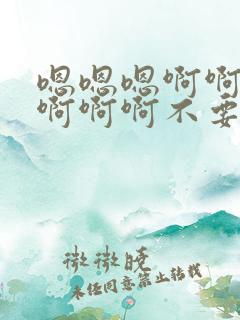 嗯嗯嗯啊啊
啊啊啊不要
微微晓
未经同意禁止转载